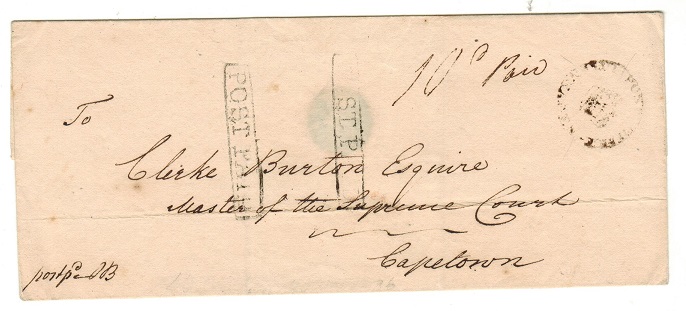 10d Paid
POST PAID
To
Clerke Burton Esquire
Master of the Supreme Court
Capetown
postpd